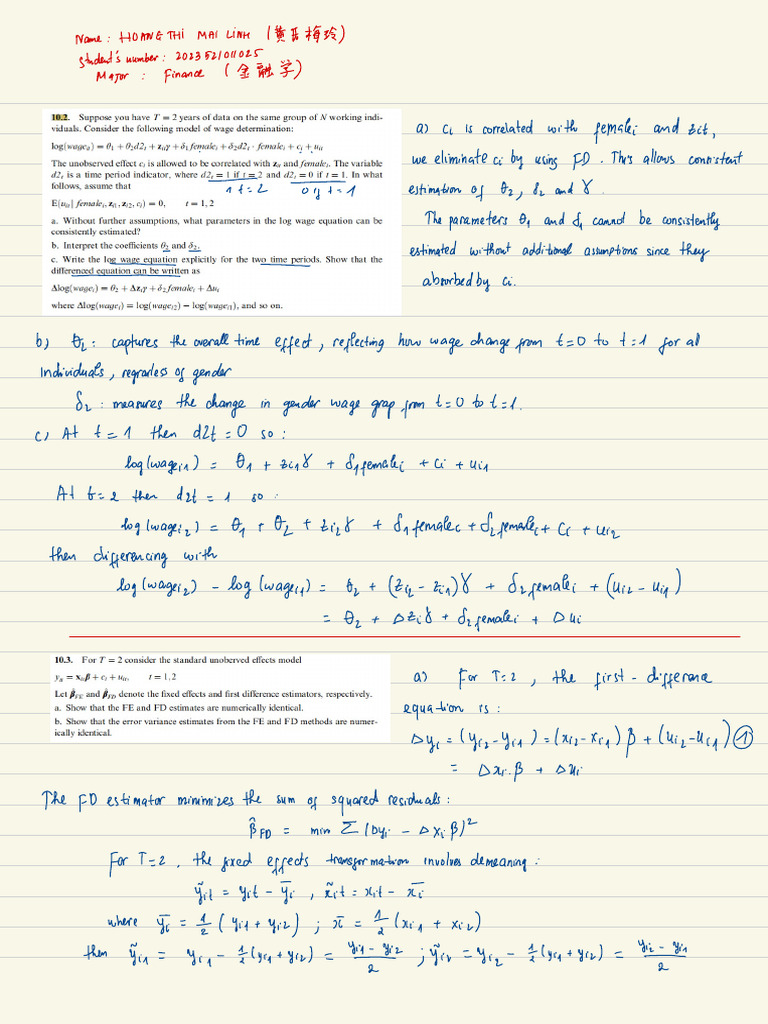 Name: HOANG THI MAI LINH (黄氏梅玲)
Student's number: 202352101025
Major: Finance (金融学)
10.2. Suppose you have T = 2 years of data on the same group of N working indi-
viduals. Consider the following model of wage determination:
log(wage_it) = θ1 + θ2d2t + z_itγ + δ1 female_i + δ2d2t · female_i + c_i + u_it
The unobserved effect c_i is allowed to be correlated with z_it and female_i. The variable
d2t is a time period indicator, where d2t = 1 if t = 2 and d2t = 0 if t = 1. In what
1 t=2 0 if t=1
follows, assume that
E(u_it | female_i, z_i1, z_i2, c_i) = 0, t = 1, 2
a. Without further assumptions, what parameters in the log wage equation can be
consistently estimated?
b. Interpret the coefficients θ2 and δ2.
c. Write the log wage equation explicitly for the two time periods. Show that the
differenced equation can be written as
Δlog(wage_i) = θ2 + Δz_iγ + δ2 female_i + Δu_i
where Δlog(wage_i) = log(wage_i2) − log(wage_i1), and so on.
a) ci is correlated with femalei and zit,
we eliminate ci by using FD. This allows consistent
estimation of θ2, δ2 and γ.
The parameters θ1 and δ1 cannot be consistently
estimated without additional assumptions since they
absorbed by ci.
b) θ2: captures the overall time effect, reflecting how wage change from t=0 to t=1 for all
individuals, regrarless of gender
δ2: measures the change in gender wage grap from t=0 to t=1.
c, At t = 1 then d2t = 0 so:
log(wagei1) = θ1 + zi1γ + δ1femalei + ci + ui1
At t=2 then d2t = 1 so:
log(wagei2) = θ1 + θ2 + zi2γ + δ1femalei + δ2femalei + ci + ui2
then differencing with
log(wagei2) - log(wagei1) = θ2 + (zi2 - zi1)γ + δ2femalei + (ui2 - ui1)
= θ2 + Δziγ + δ2femalei + Δui
10.3. For T = 2 consider the standard unoberved effects model
y_it = x_itβ + c_i + u_it, t = 1, 2
Let β̂_FE and β̂_FD denote the fixed effects and first difference estimators, respectively.
a. Show that the FE and FD estimates are numerically identical.
b. Show that the error variance estimates from the FE and FD methods are numer-
ically identical.
a) For T=2, the first-difference
equation is:
Δyi = (yi2-yi1) = (xi2-xi1)β + (ui2-ui1) ①
= Δxi.β + Δui
The FD estimator minimizes the sum of squared residuals:
β̂FD = min Σ(Δyi - Δxiβ)²
For T=2, the fixed effects transformation involves demeaning:
ỹit = yit - ȳi, x̃it = xit - x̄i
where ȳi = 1/2 (yi1 + yi2); x̄ = 1/2 (xi1 + xi2)
then ỹi1 = yi1 - 1/2(yi1 + yi2) = (yi1 - yi2)/2; ỹi2 = yi2 - 1/2(yi1 + yi2) = (yi2 - yi1)/2